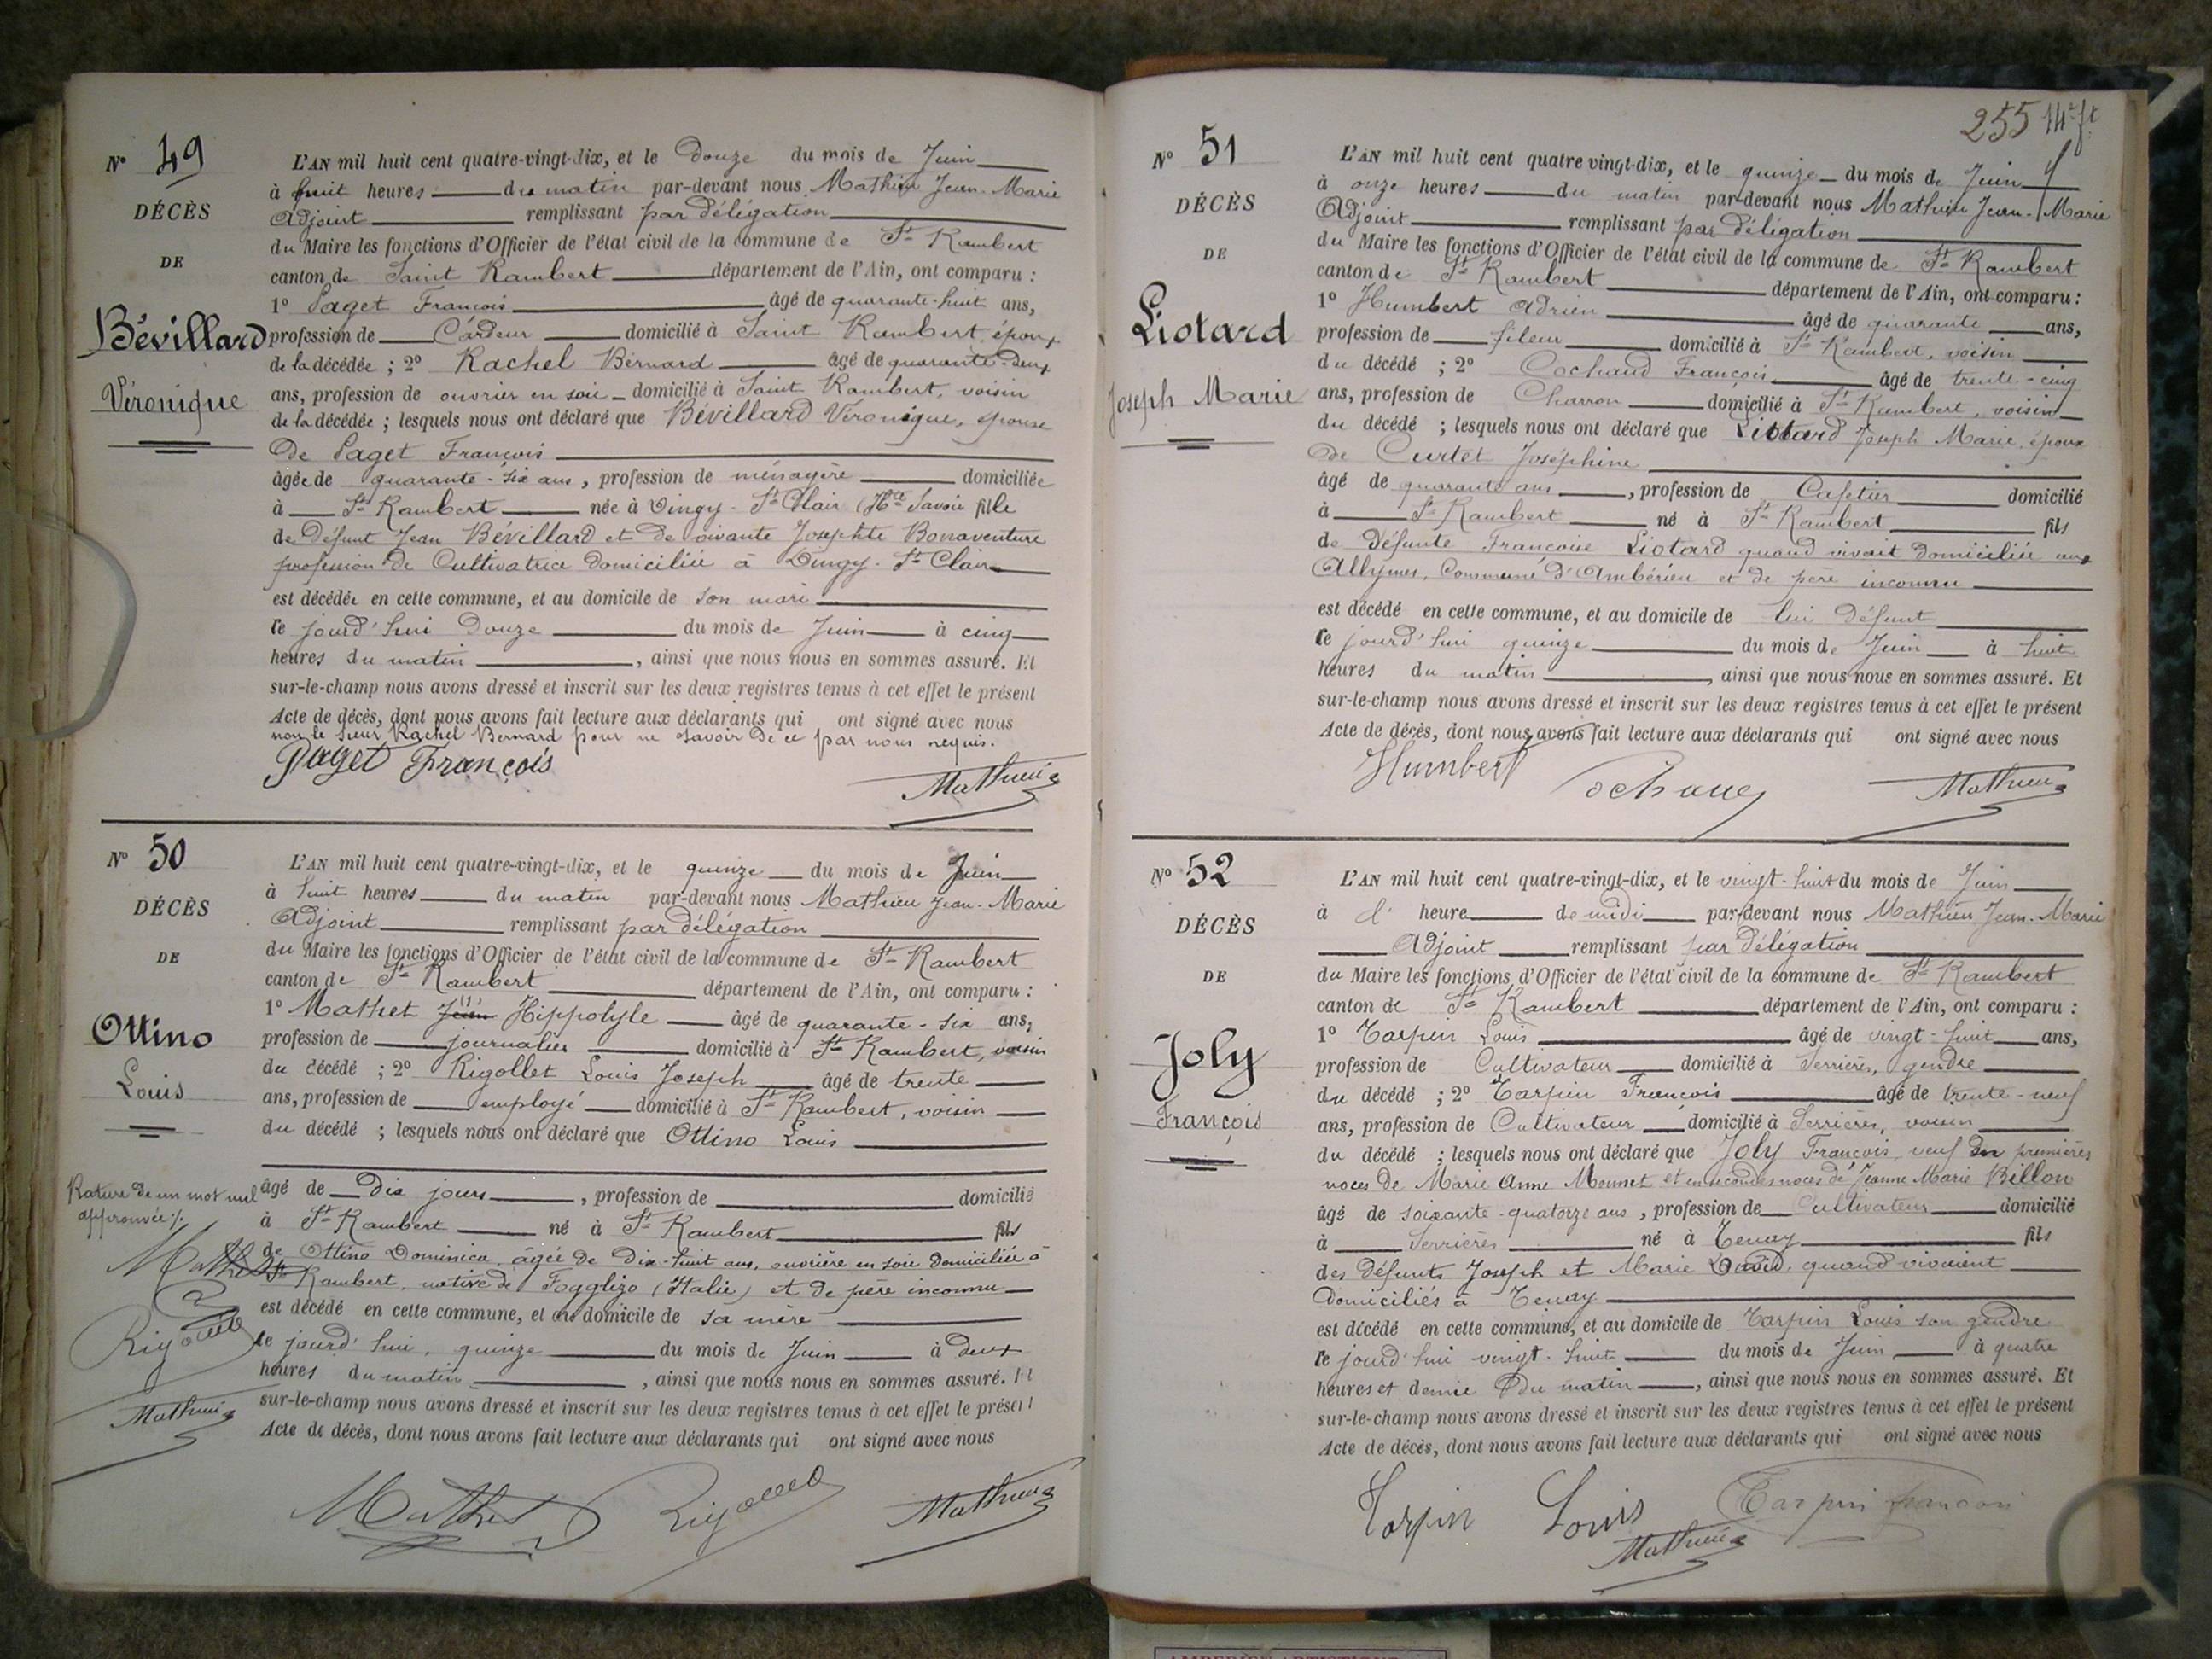 N° 49
DÉCÈS
DE
Bévillard
Véronique
L'AN mil huit cent quatre-vingt-dix, et le Douze du mois de Juin
à huit heures du matin par-devant nous Mathieu Jean-Marie
Adjoint remplissant par délégation
du Maire les fonctions d'Officier de l'état civil de la commune de St Rambert
canton de Saint Rambert département de l'Ain, ont comparu :
1° Paget François âgé de quarante-huit ans,
profession de Cardeur domicilié à Saint Rambert, époux
de la décédée ; 2° Rachel Bernard âgé de quarante-deux
ans, profession de ouvrier en soie domicilié à Saint Rambert, voisin
de la décédée ; lesquels nous ont déclaré que Bévillard Véronique, épouse
de Paget François
âgée de quarante-six ans, profession de ménagère domiciliée
à St Rambert née à Dingy-St-Clair (Hte Savoie fille
de défunt Jean Bévillard et de vivante Josephte Bonaventure
profession de Cultivatrice domiciliée à Dingy-St Clair
est décédée en cette commune, et au domicile de son mari
ce jourd'hui Douze du mois de Juin à cinq
heures du matin, ainsi que nous nous en sommes assuré. Et
sur-le-champ nous avons dressé et inscrit sur les deux registres tenus à cet effet le présent
Acte de décès, dont nous avons fait lecture aux déclarants qui ont signé avec nous
non le sieur Rachel Bernard pour ne savoir de ce par nous requis.
Paget François
Mathieu
N° 50
DÉCÈS
DE
Ottino
Louis
Rature de un mot nul
approuvée
Mathet
Rigollet
Mathieu
L'AN mil huit cent quatre-vingt-dix, et le quinze du mois de Juin
à huit heures du matin par-devant nous Mathieu Jean-Marie
Adjoint remplissant par délégation
du Maire les fonctions d'Officier de l'état civil de la commune de St Rambert
canton de St Rambert département de l'Ain, ont comparu :
1° Mathet Jean Hippolyte âgé de quarante-six ans,
profession de journalier domicilié à St Rambert, voisin
du décédé ; 2° Rigollet Louis Joseph âgé de trente
ans, profession de employé domicilié à St Rambert, voisin
du décédé ; lesquels nous ont déclaré que Ottino Louis
âgé de Dix jours, profession de domicilié
à St Rambert né à St Rambert fils
de Ottino Dominica âgée de Dix-huit ans, ouvrière en soie domiciliée à
St Rambert, native de Fogglizo (Italie) et de père inconnu
est décédé en cette commune, et au domicile de sa mère
ce jourd'hui, quinze du mois de Juin à deux
heures du matin, ainsi que nous nous en sommes assuré. Et
sur-le-champ nous avons dressé et inscrit sur les deux registres tenus à cet effet le présent
Acte de décès, dont nous avons fait lecture aux déclarants qui ont signé avec nous
Mathet Rigollet Mathieu
255
N° 51
DÉCÈS
DE
Liotard
Joseph Marie
L'AN mil huit cent quatre vingt-dix, et le quinze du mois de Juin
à onze heures du matin par-devant nous Mathieu Jean-Marie
Adjoint remplissant par délégation
du Maire les fonctions d'Officier de l'état civil de la commune de St Rambert
canton de St Rambert département de l'Ain, ont comparu :
1° Humbert Adrien âgé de quarante ans,
profession de fileur domicilié à St Rambert, voisin
du décédé ; 2° Cochaud François âgé de trente-cinq
ans, profession de Charron domicilié à St Rambert, voisin
du décédé ; lesquels nous ont déclaré que Liotard Joseph Marie, époux
de Curtet Joséphine
âgé de quarante ans, profession de Cafetier domicilié
à St Rambert né à St Rambert fils
de défunte Françoise Liotard quand vivait domiciliée aux
Allymes, Commune d'Ambérieu et de père inconnu
est décédé en cette commune, et au domicile de lui défunt
ce jourd'hui quinze du mois de Juin à huit
heures du matin, ainsi que nous nous en sommes assuré. Et
sur-le-champ nous avons dressé et inscrit sur les deux registres tenus à cet effet le présent
Acte de décès, dont nous avons fait lecture aux déclarants qui ont signé avec nous
Humbert Mathieu
N° 52
DÉCÈS
DE
Joly
François
L'AN mil huit cent quatre-vingt-dix, et le vingt-huit du mois de Juin
à l' heure de midi par-devant nous Mathieu Jean-Marie
Adjoint remplissant par délégation
du Maire les fonctions d'Officier de l'état civil de la commune de St Rambert
canton de St Rambert département de l'Ain, ont comparu :
1° Tarpin Louis âgé de vingt-huit ans,
profession de Cultivateur domicilié à Serrières, gendre
du décédé ; 2° Tarpin François âgé de trente-neuf
ans, profession de Cultivateur domicilié à Serrières, voisin
du décédé ; lesquels nous ont déclaré que Joly François, veuf en premières
noces de Marie Anne Monnet et en secondes noces de Jeanne Marie Billon
âgé de soixante-quatorze ans, profession de Cultivateur domicilié
à Serrières né à Tenay fils
des défunts Joseph et Marie David, quand vivaient
domiciliés à Tenay
est décédé en cette commune, et au domicile de Tarpin Louis son gendre
ce jourd'hui vingt-huit du mois de Juin à quatre
heures et demie du matin, ainsi que nous nous en sommes assuré. Et
sur-le-champ nous avons dressé et inscrit sur les deux registres tenus à cet effet le présent
Acte de décès, dont nous avons fait lecture aux déclarants qui ont signé avec nous
Tarpin Louis Tarpin françois
Mathieu